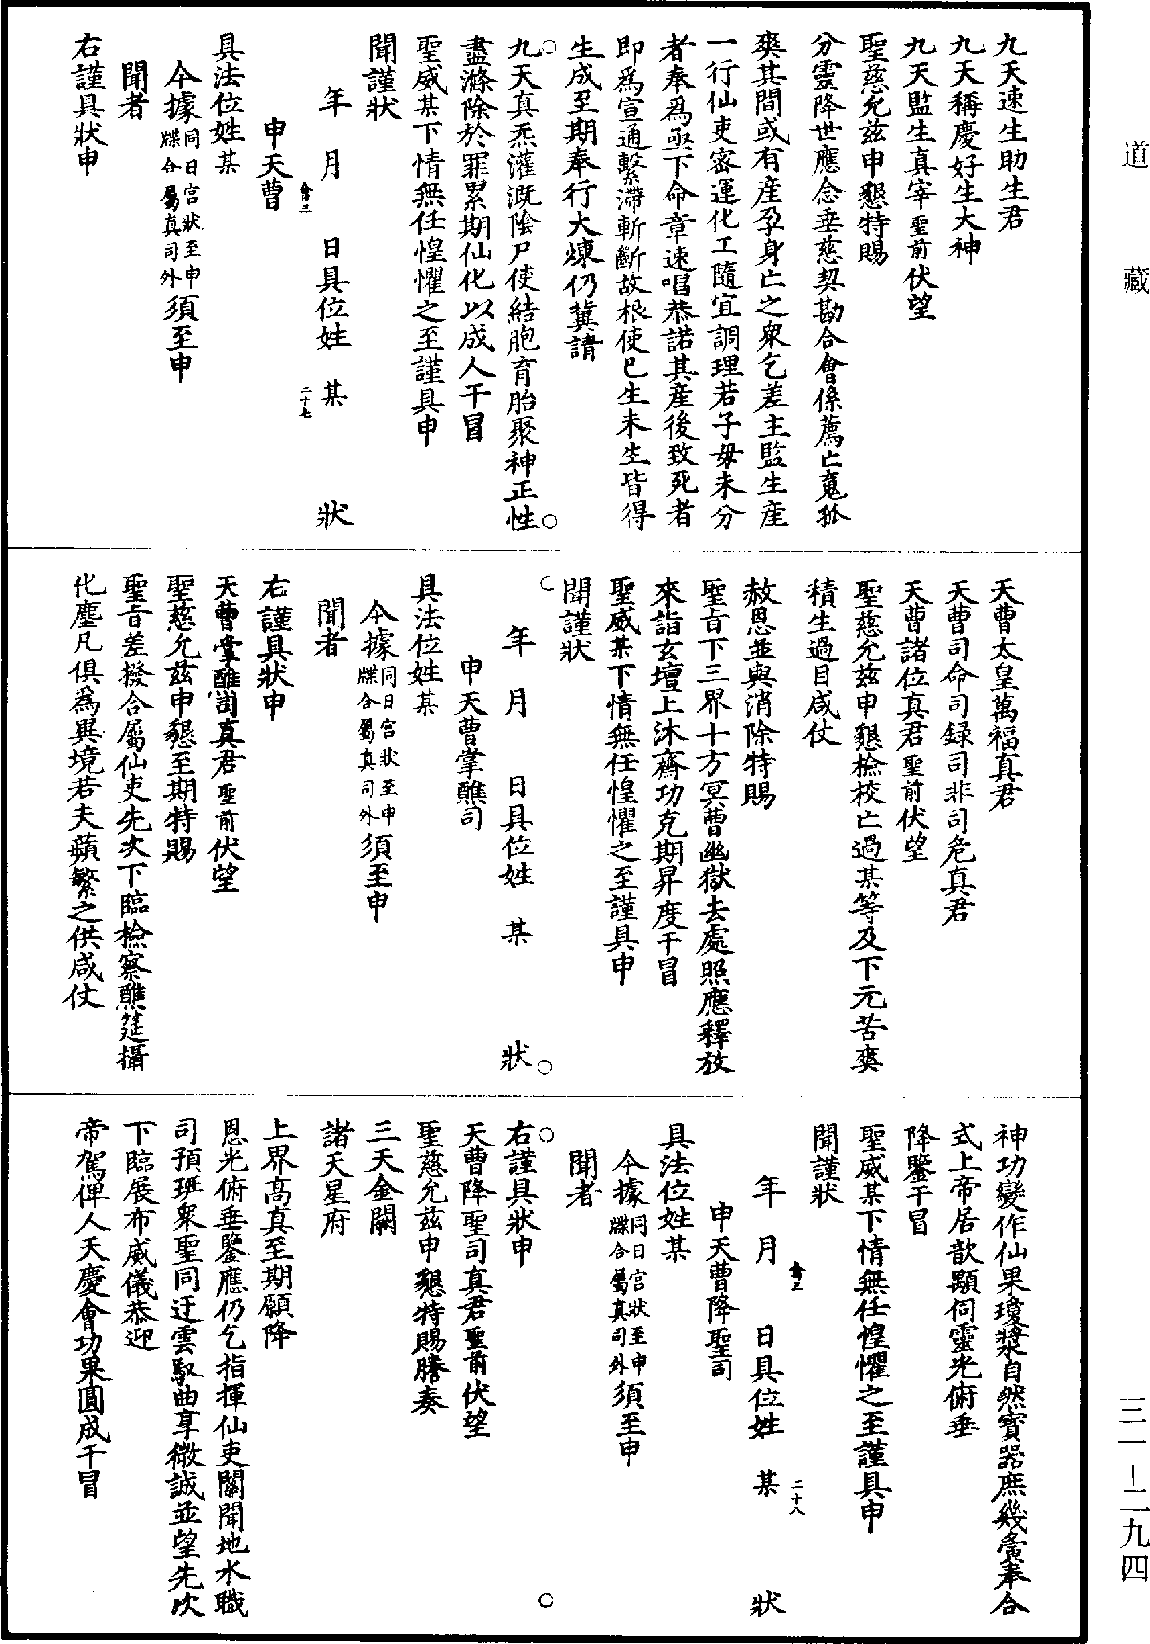 道藏
三一－二九四
九天速生助生君
九天稱慶好生大神
九天監生真宰聖前伏望
聖慈允茲申懇特賜
分靈降世應念垂慈契勘合會係薦亡䰟孤
爽其間或有產孕身亡之衆乞差主監生產
一行仙吏密運化工隨宜調理若子母未分
者奉爲亟下命章速唱恭諾其產後致死者
即爲宣通繫滯斬斷故根使已生未生皆得
生成至期奉行大煉仍冀請
九天真炁灌溉陰尸使結胞育胎聚神正性
盡滌除於罪累期仙化以成人干冒
聖威某下情無任惶懼之至謹具申
聞謹狀
年　月　日具位姓　某　　狀
二十七
申天曹
具法位姓某
今據同日宮狀至申牒合屬真司外須至申
聞者
右謹具狀申
天曹太皇萬福真君
天曹司命司録司非司危真君
天曹諸位真君聖前伏望
聖慈允茲申懇檢校亡過某等及下元苦爽
積生過目咸仗
赦恩並與消除特賜
聖旨下三界十方冥曹幽獄去處照應釋放
來詣玄壇上沐齋功克期昇度干冒
聖威某下情無任惶懼之至謹具申
聞謹狀
年　月　日具位姓　某　　狀
申天曹掌醮司
具法位姓某
今據同日宮狀至申牒合屬真司外須至申
聞者
右謹具狀申
天曹掌醮司真君聖前伏望
聖慈允茲申懇至期特賜
聖旨差撥合屬仙吏先次下臨檢察醮筵攝
化塵凡俱爲異境若夫蘋蘩之供咸仗
神功變作仙果瓊漿自然寶器庶幾齋奉合
式上帝居歆顒伺靈光俯垂
降鑒干冒
聖威某下情無任惶懼之至謹具申
聞謹狀
年　月　日具位姓　某　　狀
二十八
申天曹降聖司
具法位姓某
今據同日宮狀至申牒合屬真司外須至申
聞者
右謹具狀申
天曹降聖司真君聖前伏望
聖慈允茲申懇特賜騰奏
三天金闕
諸天星府
上界高真至期願降
恩光俯垂鑒應仍乞指揮仙吏關聞地水職
司預班衆聖同迂雲馭曲享微誠並望先次
下臨展布威儀恭迎
帝駕俾人天慶會功果圓成干冒